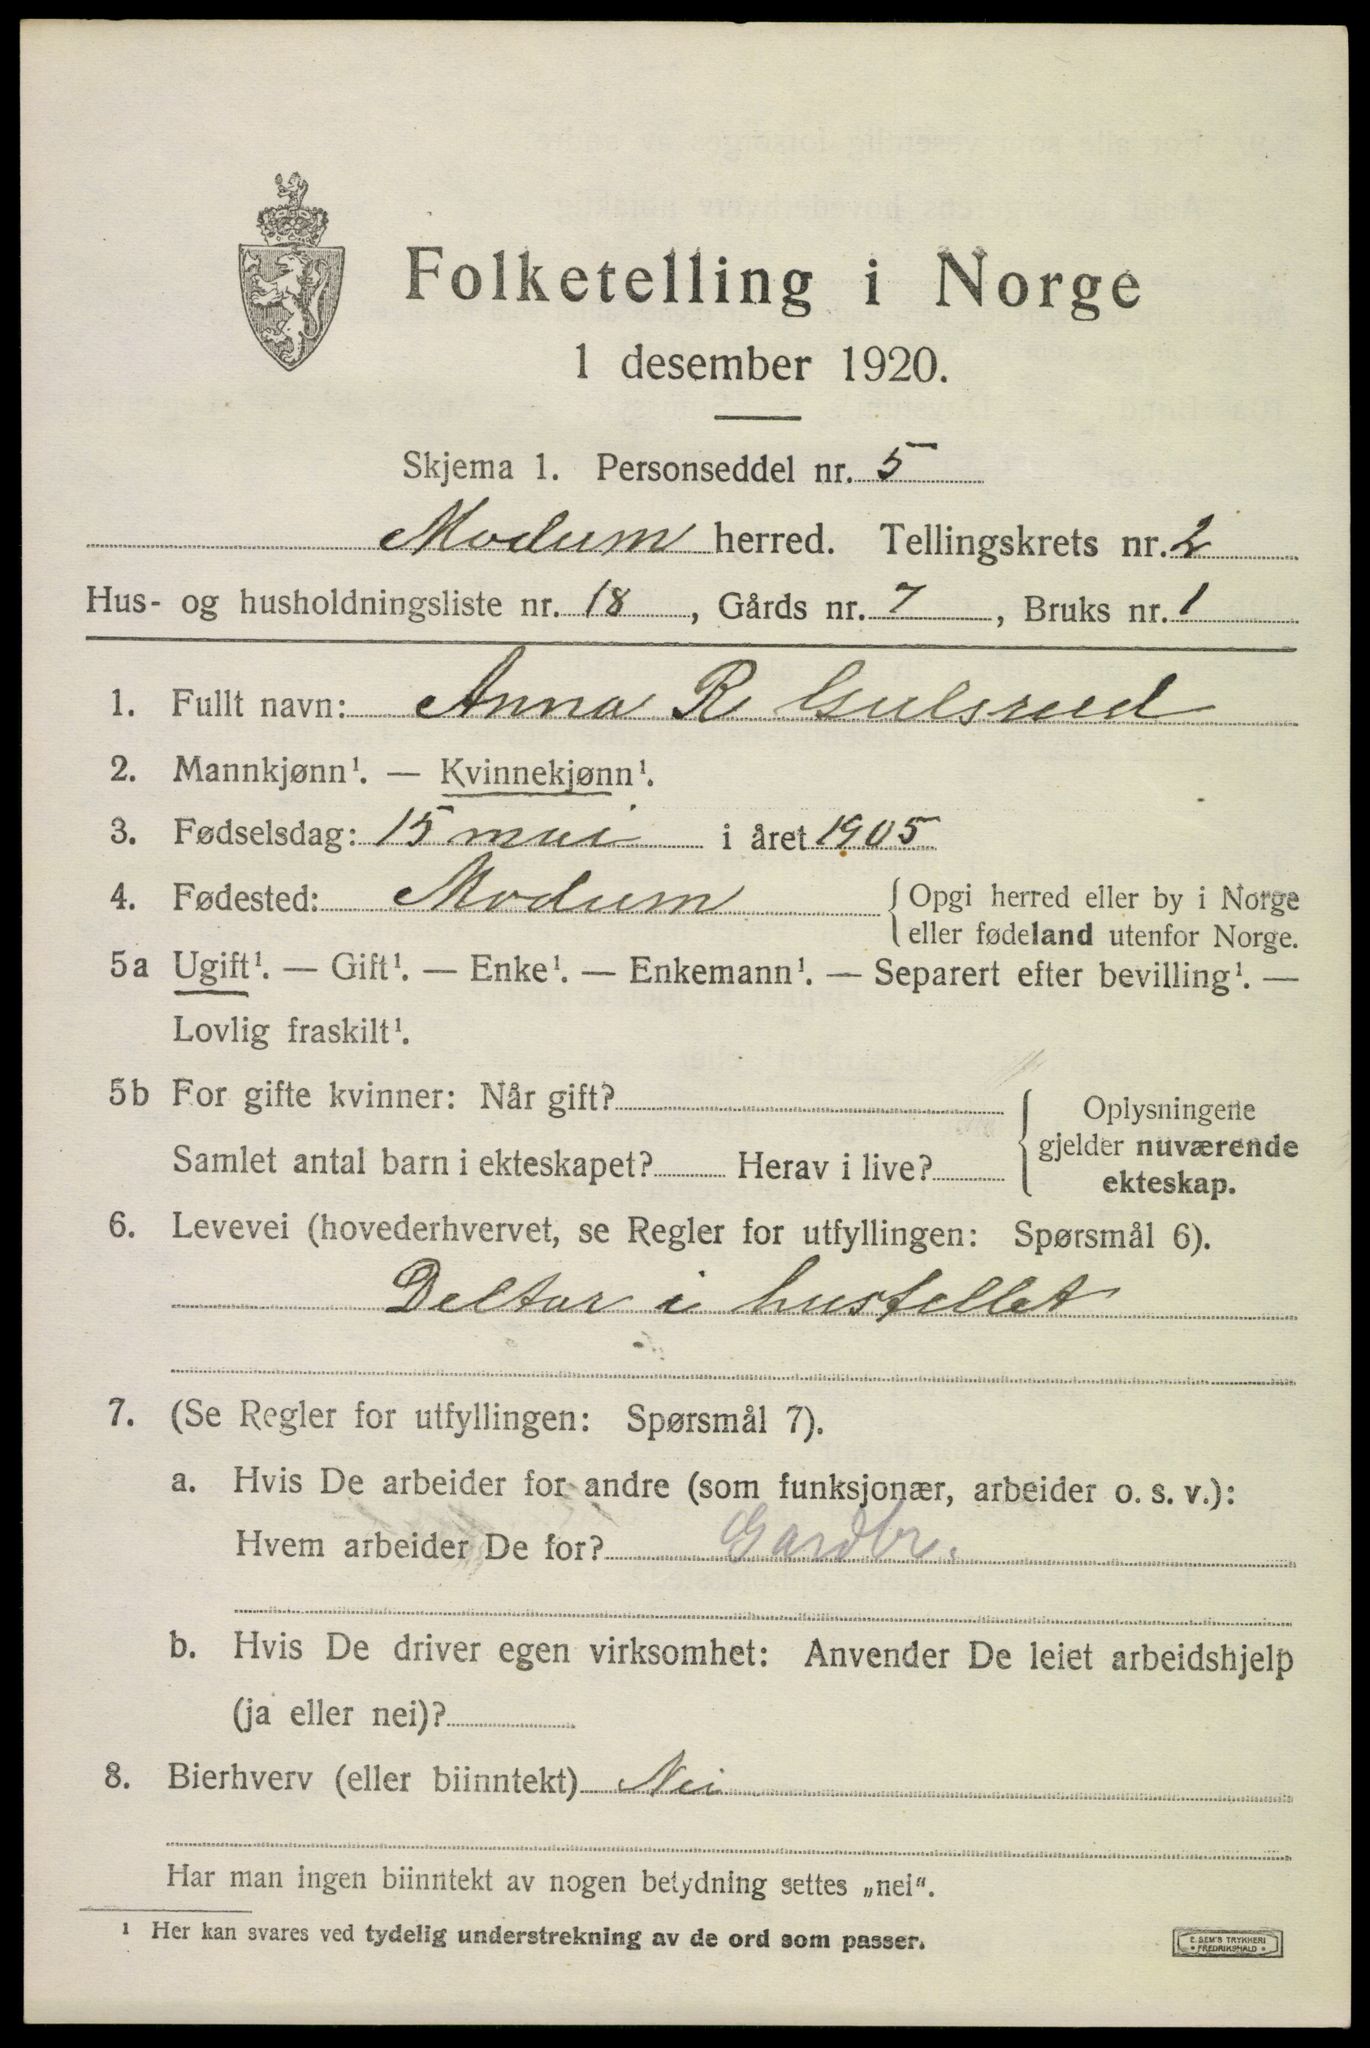 Folketelling i Norge
1 desember 1920.
Skjema 1. Personseddel nr. 5
Modum herred. Tellingskrets nr. 2
Hus- og husholdningsliste nr. 18, Gårds nr. 7, Bruks nr. 1
1. Fullt navn: Anna R Gulsrud
2. Mannkjønn¹. — Kvinnekjønn¹.
3. Fødselsdag: 15 mai i året 1905
4. Fødested: Modum { Opgi herred eller by i Norge
eller fødeland utenfor Norge.
5a Ugift¹. — Gift¹. — Enke¹. — Enkemann¹. — Separert efter bevilling¹. —
Lovlig fraskilt¹.
5b For gifte kvinner: Når gift?
Samlet antal barn i ekteskapet? Herav i live?
{ Oplysningene
gjelder nuværende
ekteskap.
6. Levevei (hovederhvervet, se Regler for utfyllingen: Spørsmål 6).
Deltar i husstellet
7. (Se Regler for utfyllingen: Spørsmål 7).
a. Hvis De arbeider for andre (som funksjonær, arbeider o. s. v.):
Hvem arbeider De for? Gardbr.
b. Hvis De driver egen virksomhet: Anvender De leiet arbeidshjelp
(ja eller nei)?
8. Bierhverv (eller biinntekt) Nei
Har man ingen biinntekt av nogen betydning settes „nei".
¹ Her kan svares ved tydelig understrekning av de ord som passer.
E. SEM'S TRYKKERI
FREDRIKSHALD